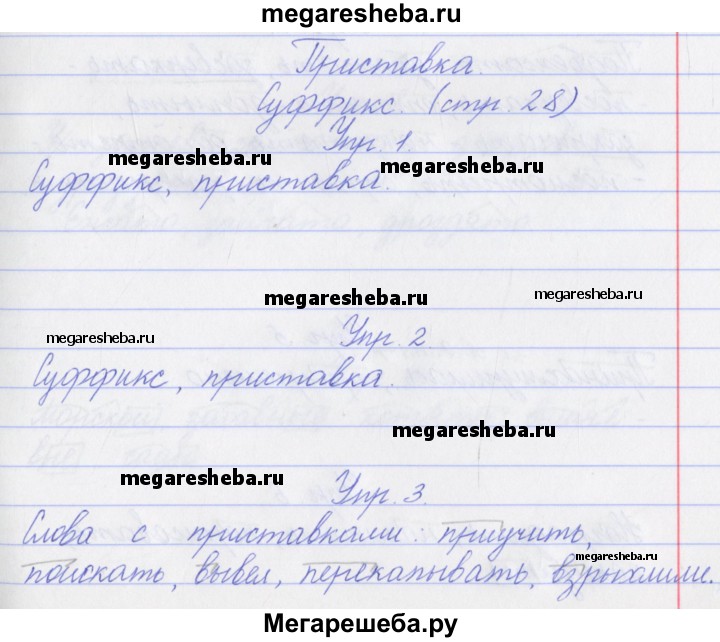 megaresheba.ru
Приставка.
Суффикс. (стр. 28)
Упр. 1.
megaresheba.ru
Суффикс, приставка.
megaresheba.ru
megaresheba.ru
megaresheba.ru
Упр. 2.
Суффикс, приставка.
megaresheba.ru
megaresheba.ru
Упр. 3.
Слова с приставками: приучить,
megaresheba.ru
поискать, вывел, перекапывать, взрыхлили.
Мегарешеба.ру